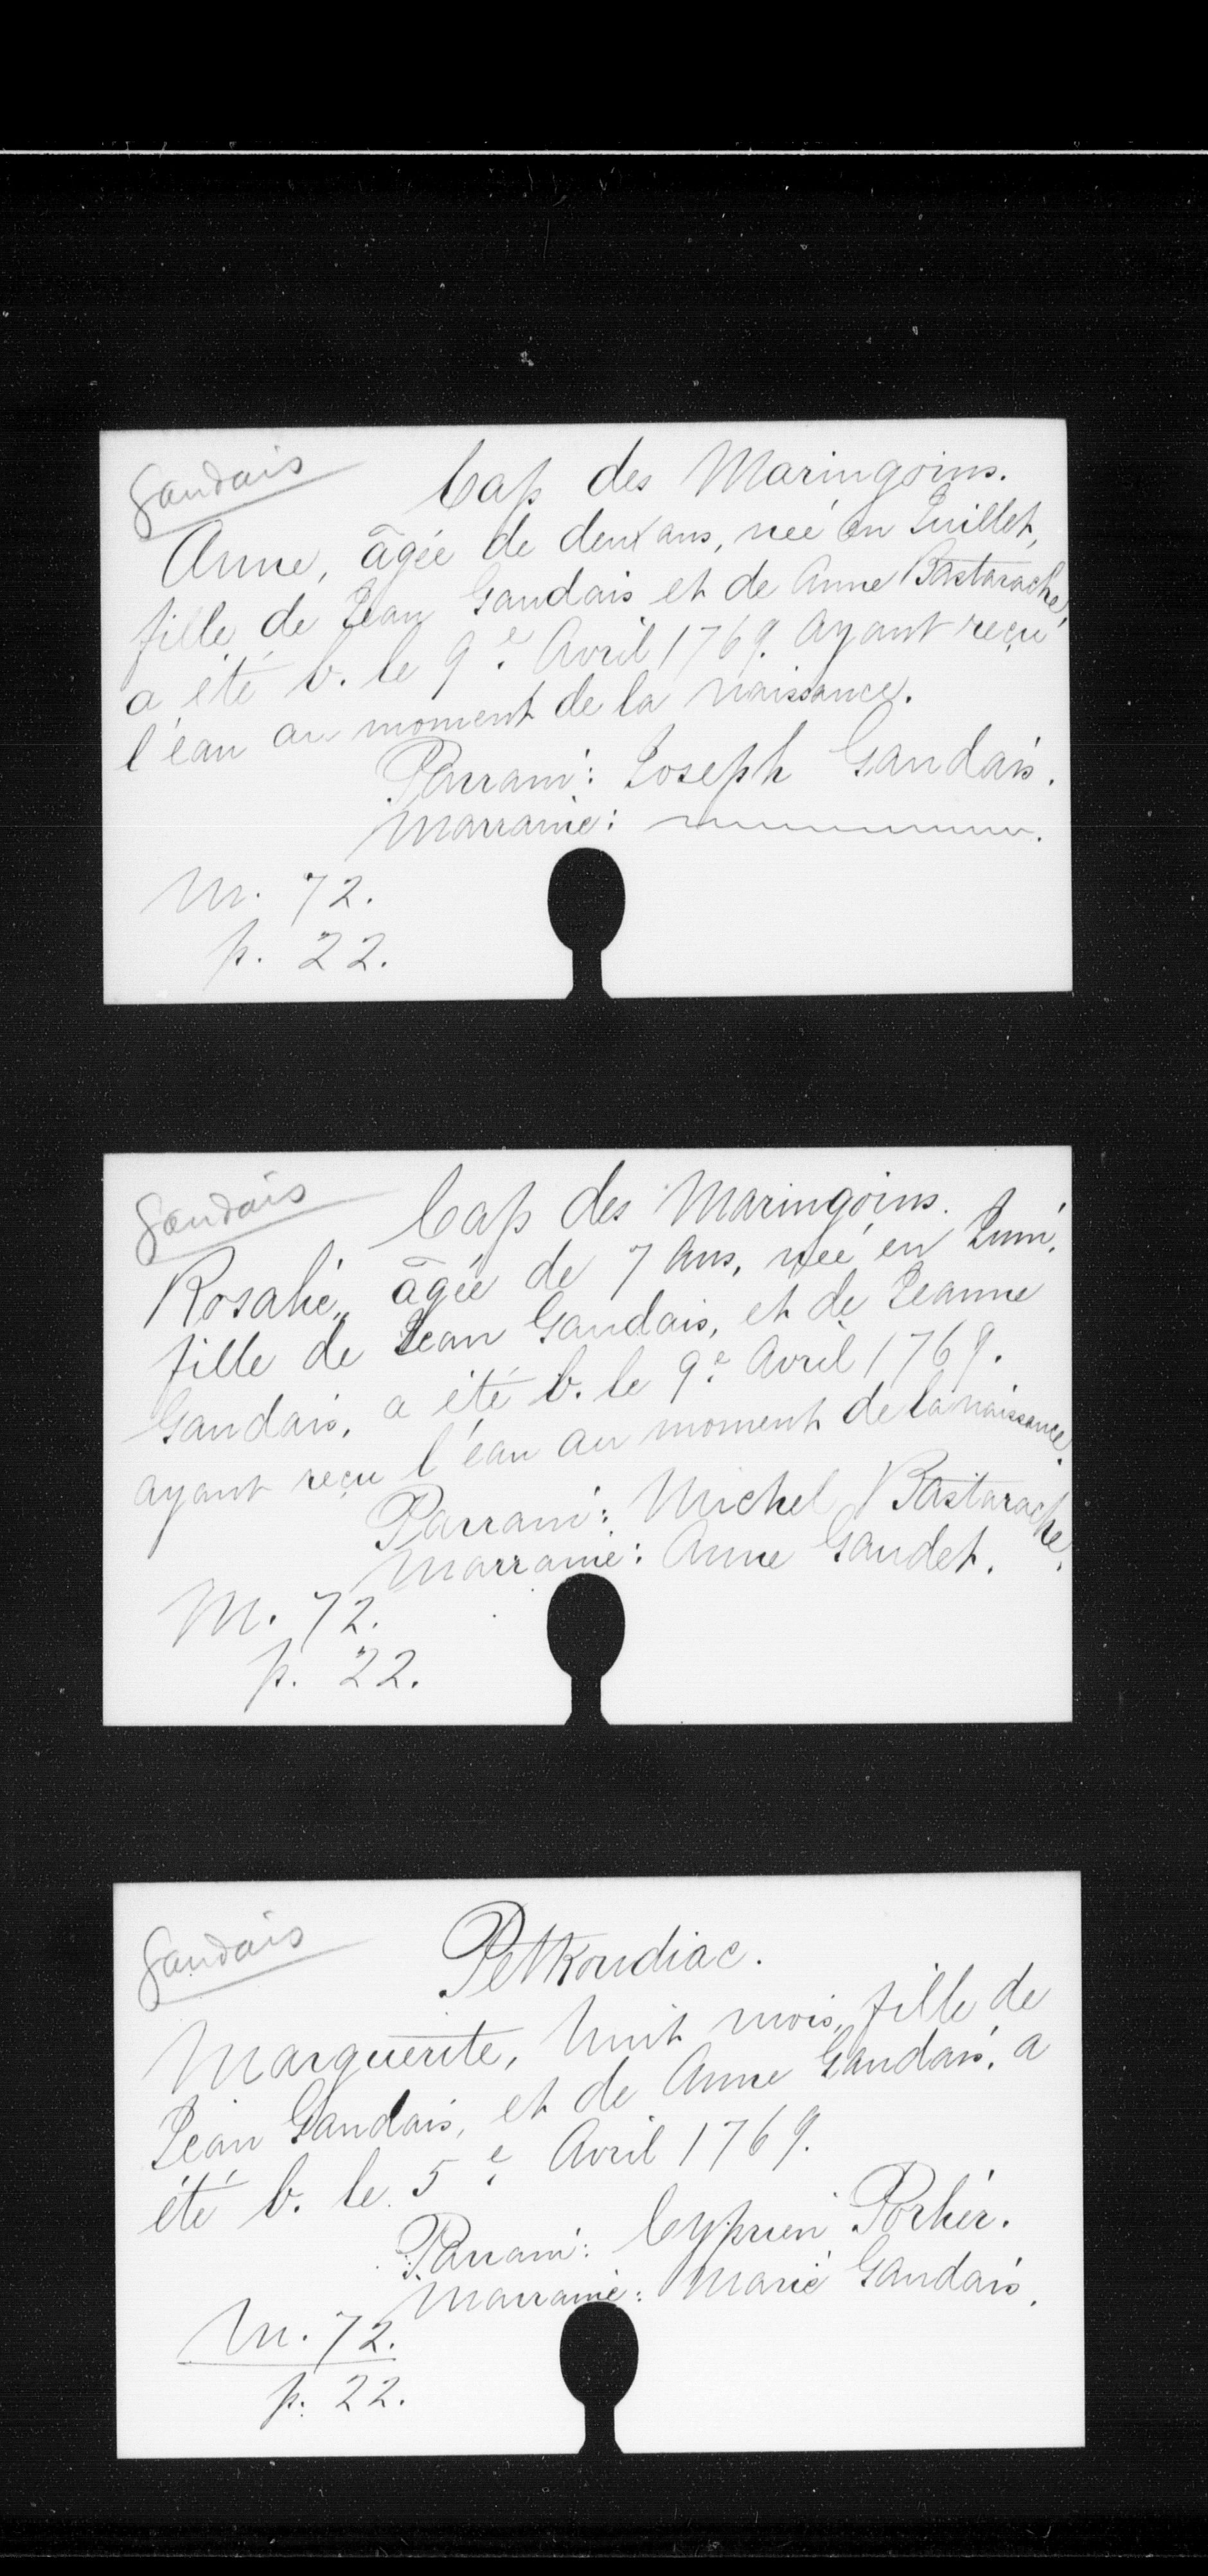 Gaudais
Cap des Maringoins.
Anne, âgée de deux ans, née en Juillet,
fille de Jean Gaudais et de Anne Bastarache,
a été b. le 9e Avril 1769. Ayant reçu
l'éau au moment de la naissance.
Parrain: Joseph Gaudais.
Marraine:
M. 72.
p. 22.
Gaudais
Cap des Maringoins.
Rosalie, âgée de 7 ans, née en Juin,
fille de Jean Gaudais, et de Jeanne
Gaudais, a été b. le 9e Avril 1769.
ayant reçu l'éau au moment de la naissance.
Parrain: Michel Bastarache.
Marraine: Anne Gaudet.
M. 72.
p. 22.
Gaudais
Petkoudiac.
Marguerite, huit mois, fille de
Jean Gaudais, et de Anne Gaudais, a
été b. le 5e Avril 1769.
Parrain: Cyprien Porlier.
Marraine: Marie Gaudais.
M. 72.
p. 22.